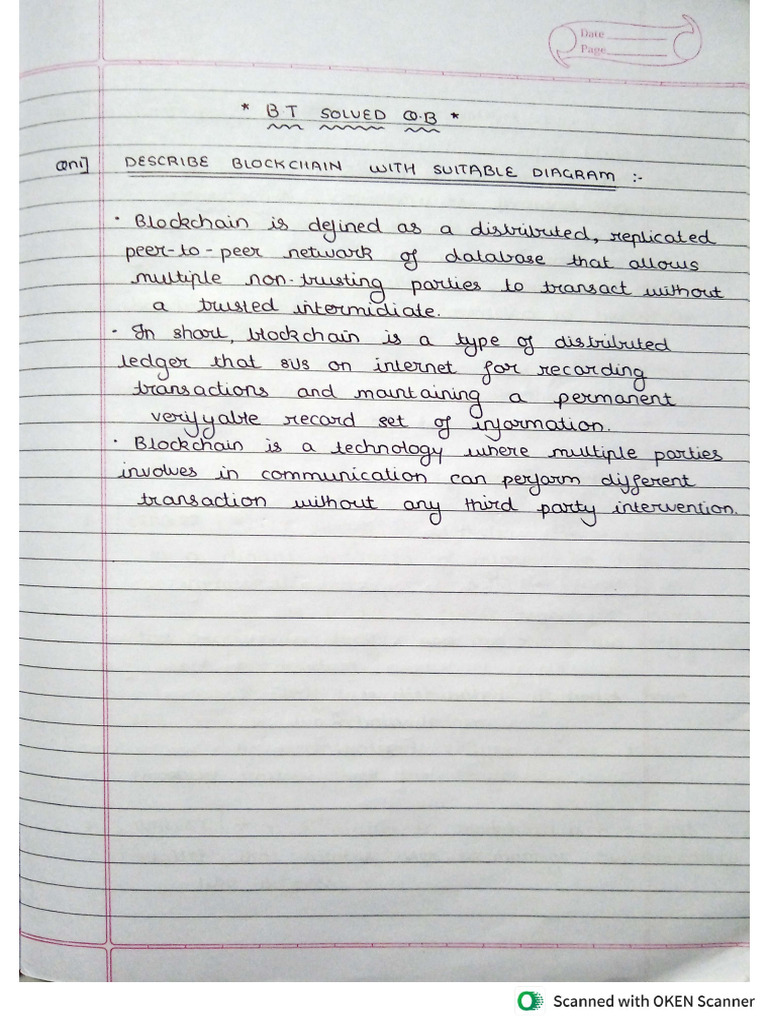 Date
Page
* B.T SOLVED Q.B *
Qn1] DESCRIBE BLOCKCHAIN WITH SUITABLE DIAGRAM :-
• Blockchain is defined as a distributed, replicated
peer-to-peer network of database that allows
multiple non-trusting parties to transact without
a trusted intermidiate.
• In short, blockchain is a type of distributed
ledger that sus on internet for recording
transactions and maintaining a permanent
verifyable record set of information.
• Blockchain is a technology where multiple parties
involves in communication can perform different
transaction without any third party intervention.
Scanned with OKEN Scanner